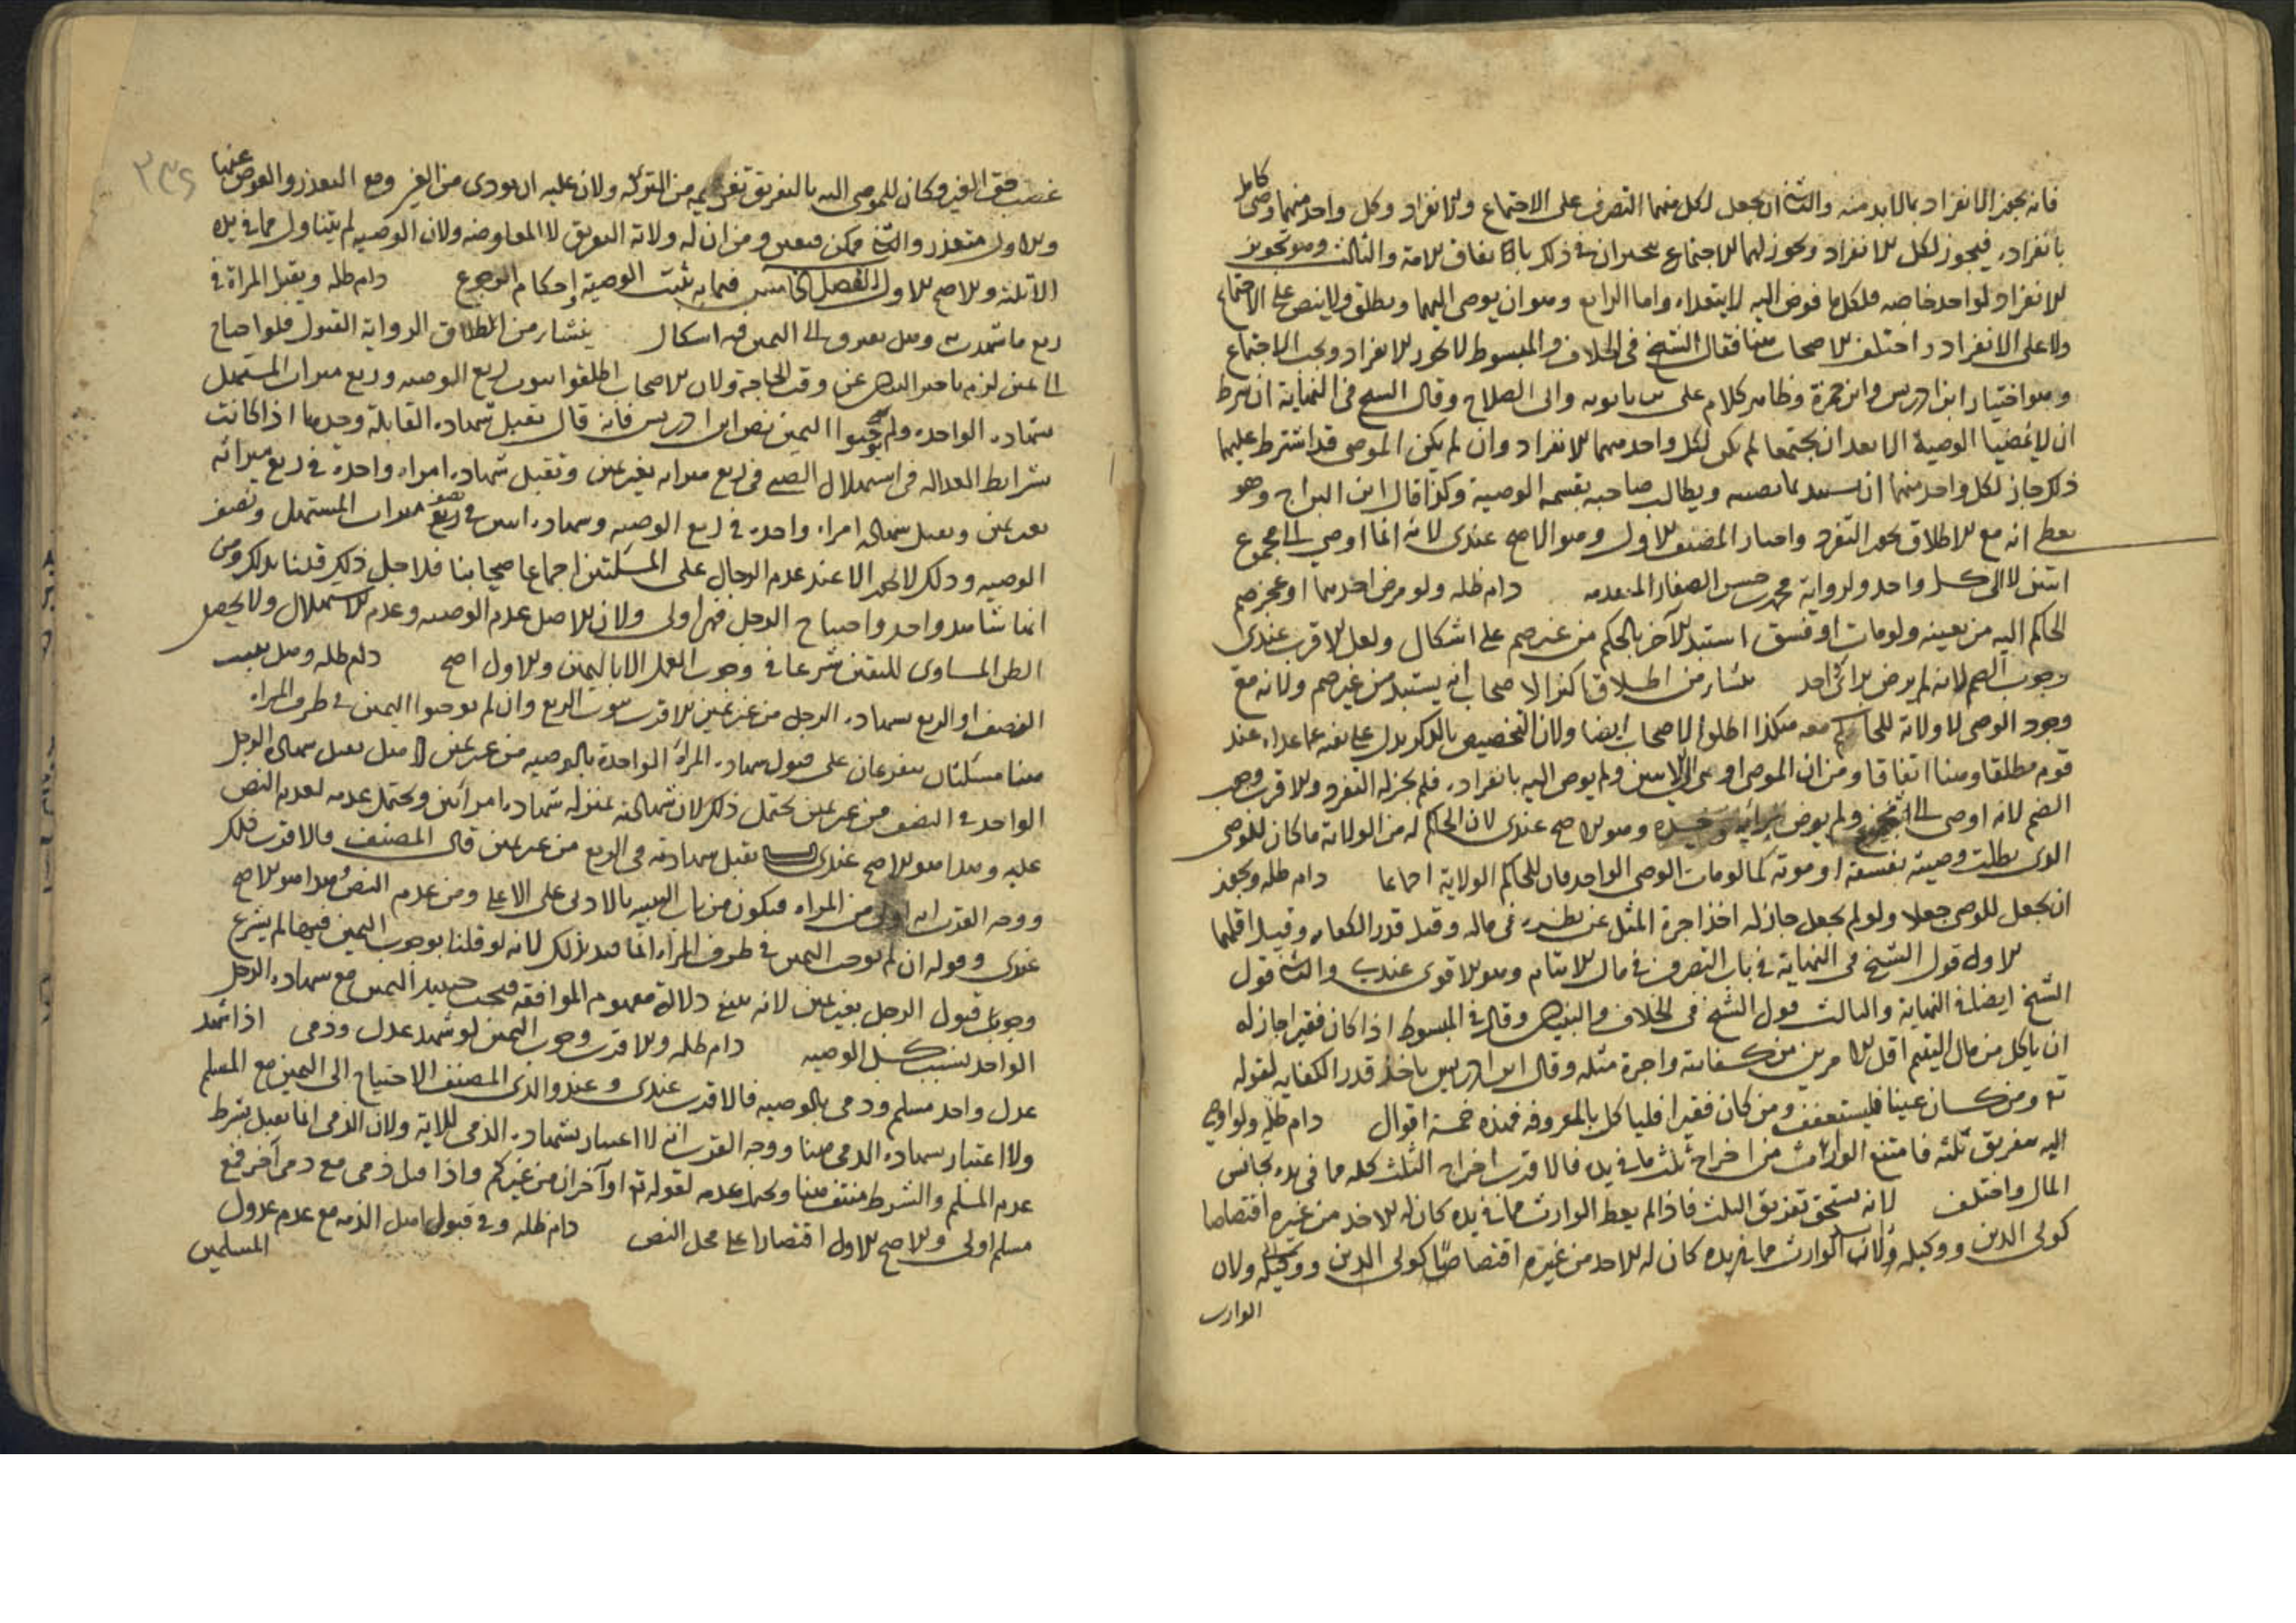 كامل
فانه يجوز الانفراد بما لابد منه والثانى ان يجعل لكل منهما التصرف على الاجتماع والانفراد وكل واحد منهما وصى
بانفراده فيجوز لكل الانفراد ويجوز لهما الاجتماع يتخيران فى ذلك باتفاق الامة والثالث وهو تجويز
الانفراد لواحد خاصه فلكل ما فوض اليه لا يتعداه واما الرابع وهو ان يوصى اليهما ويطلق ولا ينص على الاجتماع
ولا على الانفراد واختلف الاصحاب هنا فقال الشيخ فى الخلاف والمبسوط لا يجوز الانفراد ويجب الاجتماع
وهو اختيار ابن ادريس وابن حمزة وظاهر كلام على بن بابويه وابى الصلاح وقال الشيخ فى النهاية ان شرط
ان لا يمضيا الوصية الا بعد ان يجتمعا لم يكن لكل واحد منهما الانفراد وان لم يكن الموصى قد اشترط عليهما
ذلك جاز لكل واحد منهما ان يستبد بما يصيبه ويطالب صاحبه بقسمة الوصية وكذا قال ابن البراج وهو
يعطى انه مع الاطلاق يجوز التفرد واختار المصنف الاول وهو الاصح عندى لانه انما اوصى الى مجموع
اثنين لا الى كل واحد ولرواية محمد بن حسن الصفار المتقدمه دام ظله ولو مرض احدهما او عجز ضم
الحاكم اليه من يعينه ولو مات او فسق استبد الآخر بالحكم من غير ضم على اشكال ولعل الاقرب عندى
وجوب الضم لانه لم يرض براى واحد ينشا من اطلاق اكثر الاصحاب انه يستبد من غير ضم ولانه مع
وجود الوصى لا ولاية للحاكم معه هكذا اطلق الاصحاب ايضا ولان التخصيص بالذكر يدل على نفيه عما عداه عند
قوم مطلقا وهنا اتفاقا ومن ان الموصى اوصى الى الاثنين ولم يوص اليه بانفراده فلم يجز له التفرد والاقرب وجوب
الضم لانه اوصى الى ولم يرض وهو الاصح عندى لان الحاكم له من الولاية ما كان للوصى
الذى بطلت وصيته بفسقه او موته كما لو مات الوصى الواحد فان للحاكم الولاية اجماعا دام ظله ويجوز
ان يجعل للوصى جعلا ولو لم يجعل جاز له اخذ اجرة المثل عن نظره فى ماله وقيل قدر الكفايه وقيل اقلهما
الاول قول الشيخ فى النهاية فى باب التصرف فى مال الايتام وهو الاقوى عندى والثانى قول
الشيخ ايضا فى النهاية والثالث قول الشيخ فى الخلاف والتبيان وقال فى المبسوط اذا كان فقيرا جاز له
ان ياكل من مال اليتيم اقل الامرين من كفايته واجرة مثله وقال ابن ادريس ياخذ قدر الكفايه لقوله
تع ومن كان غنيا فليستعفف ومن كان فقيرا فلياكل بالمعروف فهذه خمسة اقوال دام ظله ولو اوصى
اليه بتفريق ثلثه فامتنع الوارث من اخراج ثلث ما فى يده فالاقرب اخراج الثلث كله مما فى يده بجانس
المال واختلف لانه يستحق تفريق الثلث فاذا لم يعط الوارث مما فى يده كان له الاخذ من غيره اقتصاصا
كولى الدين ووكيله ولان الوارث مما فى يده كان له الاخذ من غيره اقتصاصا كولى الدين ووكيله ولان
الوارث
٢٣٤
عنها
غصب حق الغير وكان للموصى اليه بالتفريق تغريمه من التركه ولان عليه ان يودى من الغير ومع التعذر والعوض
والاول متعذر والثانى ممكن فتعين ومن ان له ولاية التفريق لا المعاوضه ولان الوصيه لم يتناول مما فى يده
الا ثلثه والاصح الاول الفصل الخامس فيما به تثبت الوصية واحكام الرجوع دام ظله ويقبل المراة فى
ربع ما شهدت به وهل يفتقر الى اليمين فيه اشكال ينشا من اطلاق الرواية القبول فلو احتاج
الى يمين لزم تاخير البيان عن وقت الحاجة ولان الاصحاب اطلقوا ثبوت ربع الوصيه وربع ميراث المستهل
بشهاده الواحده ولم يوجبوا اليمين نص ابن ادريس فانه قال يقبل شهاده القابلة وحدها اذا كانت
بشرايط العداله فى استهلال الصبى فى ربع ميراثه بغير يمين وتقبل شهاده امراه واحدة فى ربع ميراثه
بغير يمين ويقبل شهاده امراه واحدة فى ربع الوصيه وشهاده اثنين فى نصف ميراث المستهل ونصف
الوصيه وذلك لا يجوز الا عند عدم الرجال على المسئلتين اجماع اصحابنا فلاجل ذلك قلنا بذلك ومن
انها شاهد واحد واحتياج الرجل فهى اولى ولان الاصل عدم الوصيه وعدم الاستهلال ولا يحصل
الظن المساوى لليقين شرعا فى وجوب العمل الا باليمين والاول اصح دام ظله وهل يثبت
النصف او الربع بشهاده الرجل من غير يمين الاقرب ثبوت الربع وان لم نوجبوا اليمين فى طرف المراه
هنا مسئلتان يتفرعان على قبول شهاده المراة الواحدة بالوصيه من غير يمين ا هل يقبل شهادة الرجل
الواحد فى النصف من غير يمين يحتمل ذلك لان شهادته بمنزلة شهاده امراتين ويحتمل عدمه لعدم النص
عليه وهذا هو الاصح عندى يقبل شهادته فى الربع من غير يمين قال المصنف فالاقرب ذلك
ووجه القرب انه من المراه فيكون من باب التنبيه بالادنى على الاعلى ومن عدم النص وهذا هو الاصح
عندى وقوله ان لم نوجب اليمين فى طرف المراه انما قيد بذلك لانه لو قلنا بوجوب اليمين فيها لم يتفرع
وجوب قبول الرجل بغير يمين لانه يمنع دلالة مفهوم الموافقه فيجب حينئذ اليمين مع شهاده الرجل
الواحد ليثبت كل الوصيه دام ظله والاقرب وجوب اليمين لو شهد عدل وذمى اذا شهد
عدل واحد مسلم وذمى بالوصيه فالاقرب عندى وعند والدى المصنف الاحتياج الى اليمين مع المسلم
ولا اعتبار بشهاده الذمى هنا ووجه القرب انه لا اعتبار بشهاده الذمى للاية ولان الذمى انما يقبل بشرط
عدم المسلم والشرط منتف هنا ويحتمل عدمه لقوله تع او آخران من غيركم واذا قبل ذمى مع ذمى آخر فمع
مسلم اولى والاصح الاول اقتصارا على محل النص دام ظله وفى قبول اهل الذمه مع عدم عدول
المسلمين